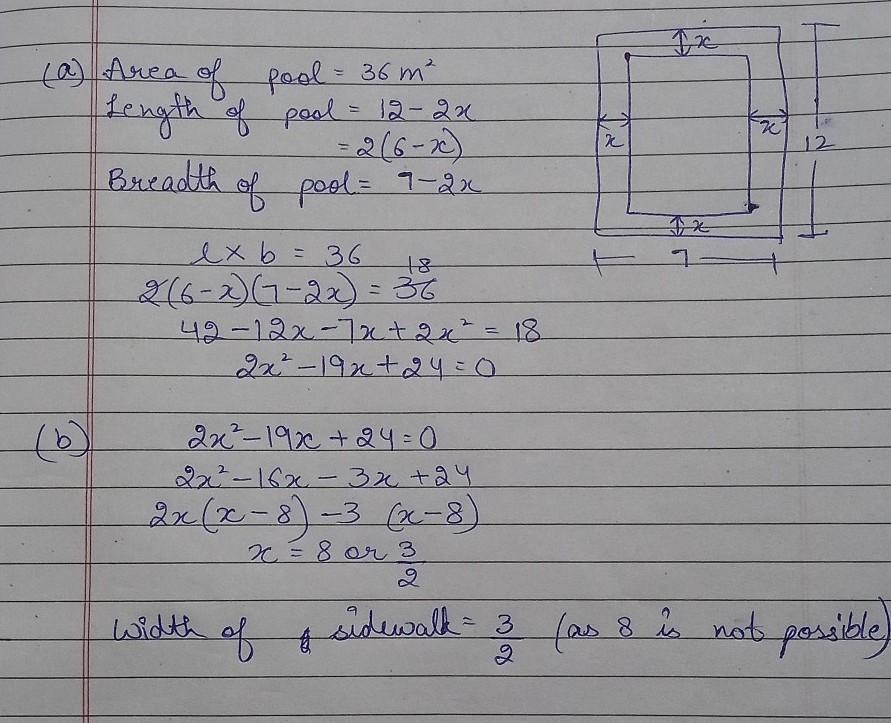 (a) Area of pool = 36 m²
Length of pool = 12 - 2x
= 2(6-x)
Breadth of pool = 7-2x
x
x
x
12
x
7
l × b = 36
18
2(6-x)(7-2x) = 36
42 - 12x - 7x + 2x² = 18
2x² - 19x + 24 = 0
(b) 2x² - 19x + 24 = 0
2x² - 16x - 3x + 24
2x(x-8) -3 (x-8)
x = 8 or 3/2
Width of sidewalk = 3/2 (as 8 is not possible)